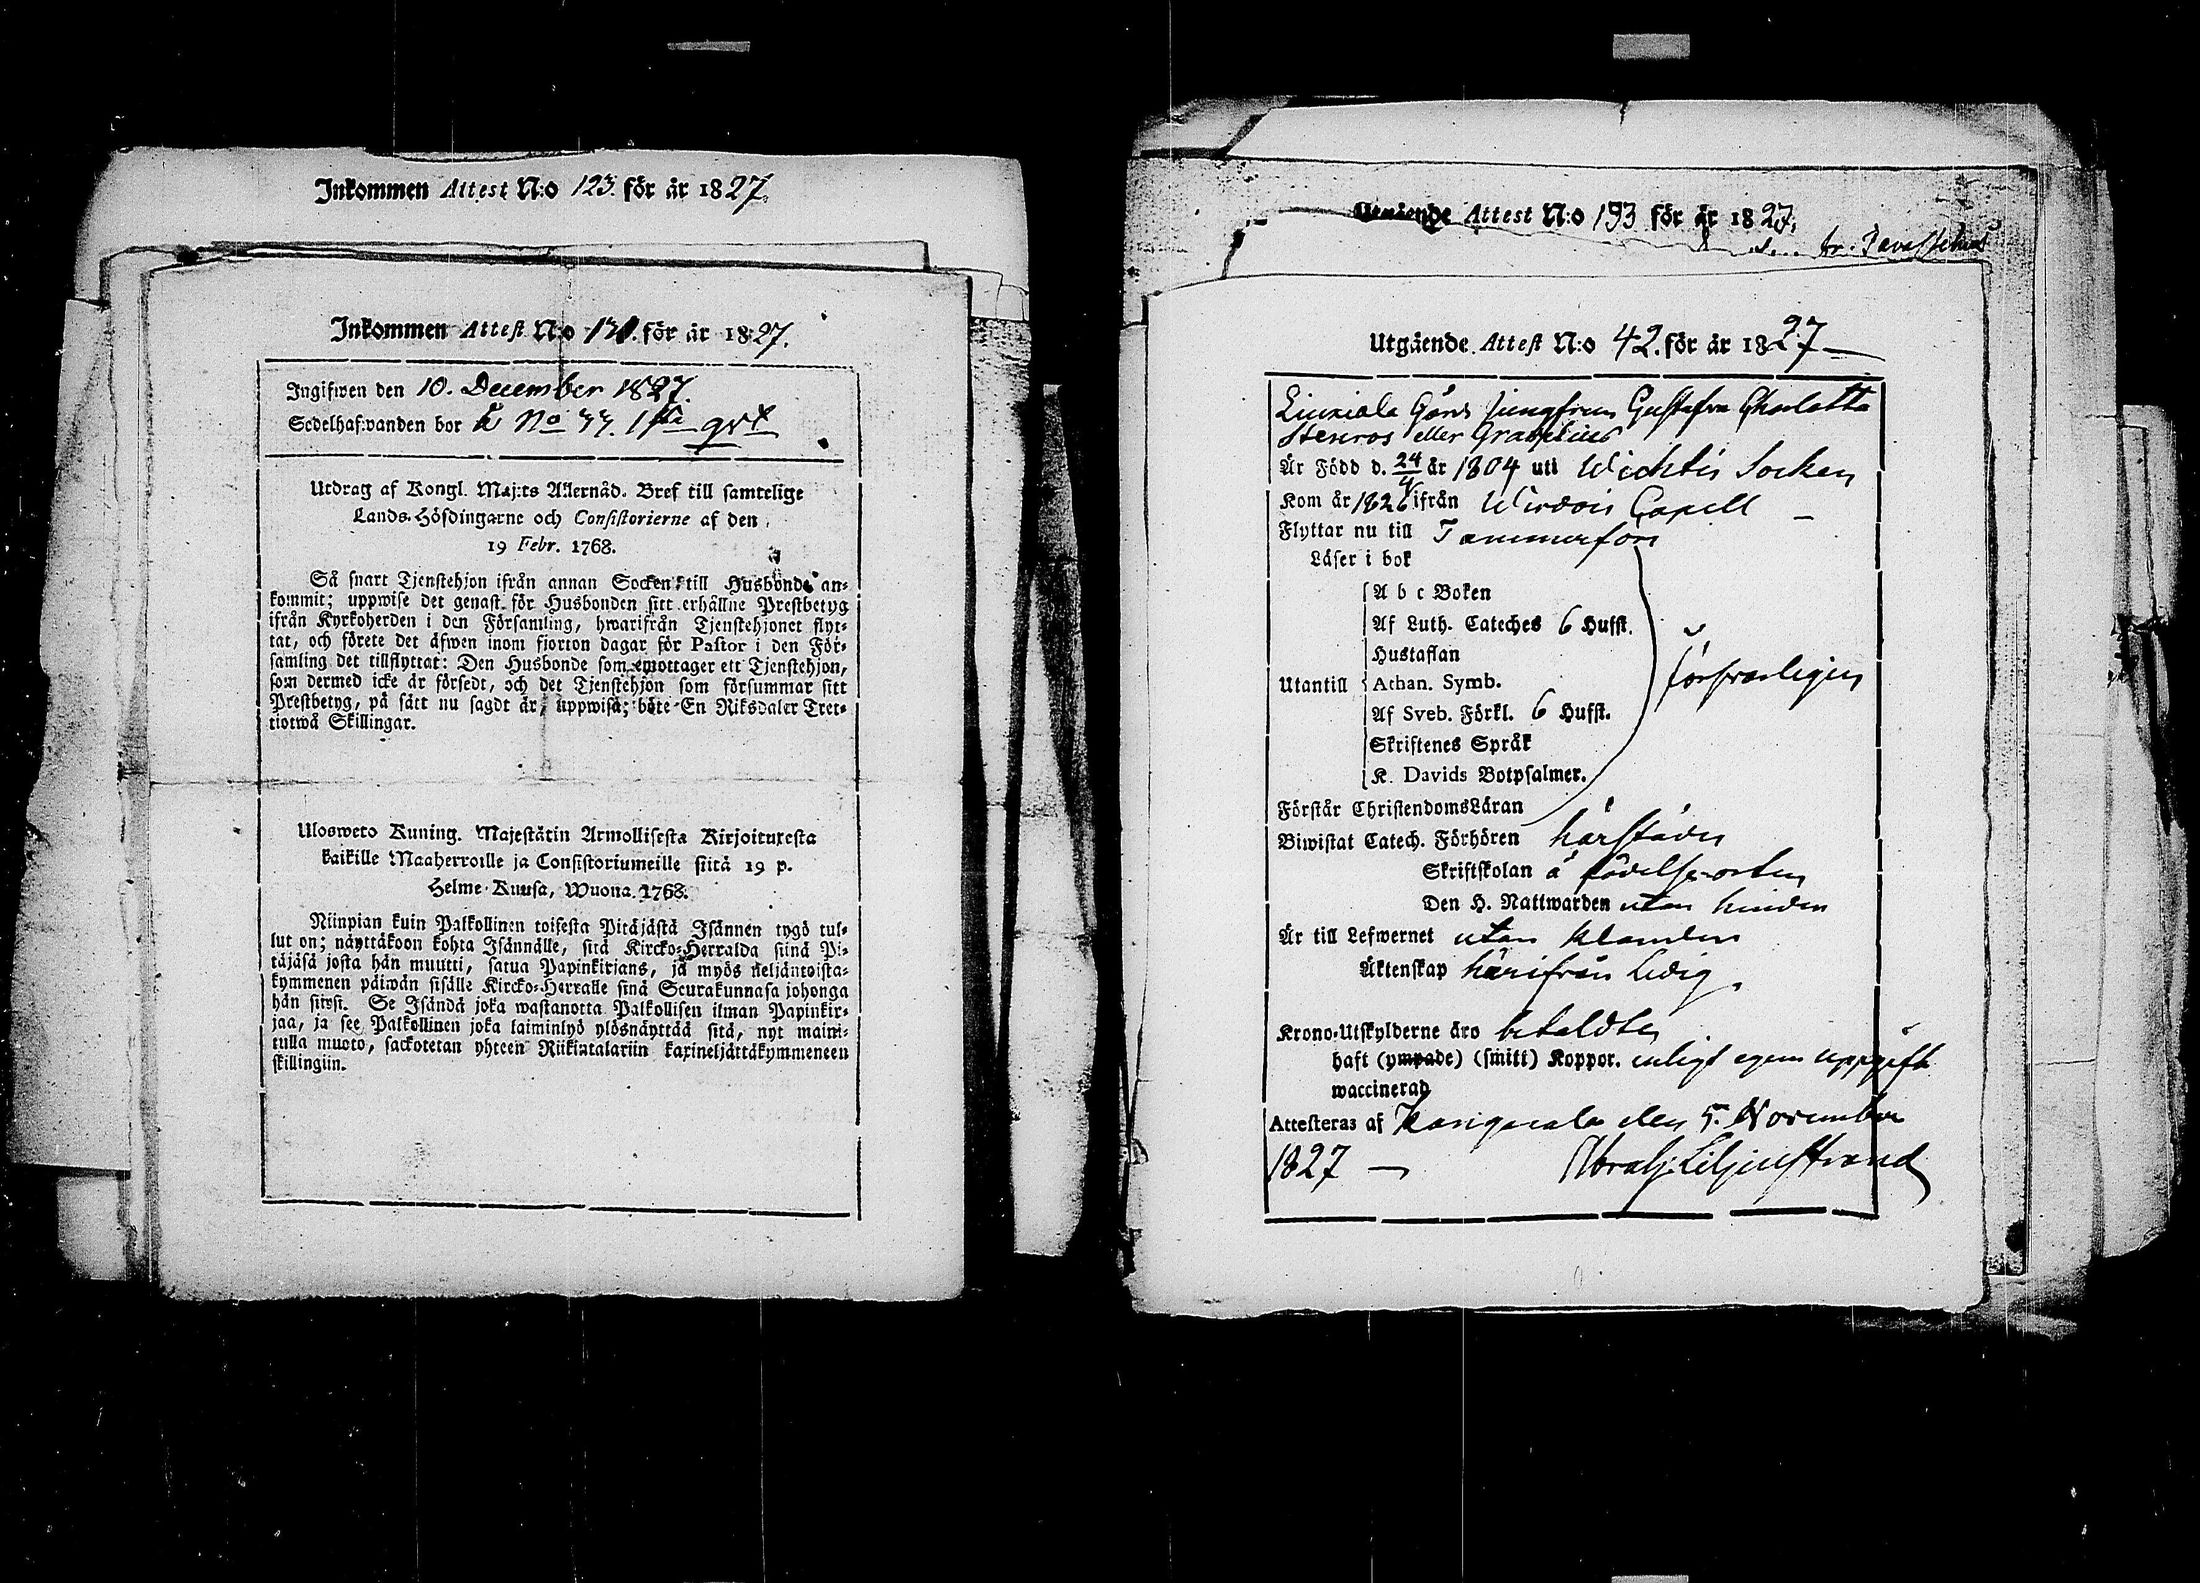 Inkommen Attest N:o 123 för år 1827.
Inkommen Attest N:o för år 1827.
Ingifwen den 10. December 1827.
Sedelhafwanden bor å No 1sta qvt
Utdrag af Kongl. Maj:ts Allernåd. Bref till samtelige
Lands-Höfdingarne och Consistorierne af den
19 Febr. 1768.
Så snart Tjenstehjon ifrån annan Socken till Husbonde an-
kommit; uppwise det genast för Husbonden sitt erhållne Prestbetyg
ifrån Kyrkoherden i den Församling, hwarifrån Tjenstehjonet flyt-
tat, och förete det äfwen inom fjorton dagar för Pastor i den För-
samling det tillflyttat: Den Husbonde som emottager ett Tjenstehjon,
som dermed icke är försedt, och det Tjenstehjon som försummar sitt
Prestbetyg, på sätt nu sagdt är, uppwisa; böte En Riksdaler Tret-
tiotwå Skillingar.
Ulosweto Kuning. Majestätin Armollisesta Kirjoituxesta
kaikille Maaherroille ja Consistoriumeille siitä 19 p.
Helme-Kuusa, Wuona 1768.
Niinpian kuin Palkollinen toisesta Pitäjästä Isännen tygö tul-
lut on; näyttäkoon kohta Isännälle, sitä Kircko-Herralda siinä Pi-
täjäsä josta hän muutti, saatua Papinkirjans, ja myös neljäntoista-
kymmenen päiwän sisälle Kircko-Herralle siinä Seurakunnasa johonga
hän siirsi. Se Isändä joka wastanotta Palkollisen ilman Papinkir-
jaa, ja see Palkollinen joka laiminlyö ylösnäyttää sitä, nyt maini-
tulla muoto, sackotetan yhteen Riikintalariin kaxineljättäkymmeneen
skillingiin.
Utgående Attest N:o 193 för år 1827.
Tavastehus
Utgående Attest N:o 42. för år 1827
Liuxiala Gård Jungfrun Gustafva Charlotta
Stenros eller
Är Född d. 24/4 år 1804 uti Wichtis Socken
Kom år 1826 ifrån Wirdois Capell
Flyttar nu till Tammerfors
Läser i bok
A b c Boken
Af Luth. Cateches 6 Hufst.
Hustaflan
Utantill Athan. Symb.
Af Sveb. Förkl. 6 Hufst.
försvarligen
Skriftenes Språk
K. Davids Botpsalmer.
Förstår ChristendomsLäran
Biwistat Catech. Förhören härstädes
Skriftskolan å födelse-orten
Den H. Nattwarden utan hinder
Är till Lefwernet utan klander
Äktenskap härifrån Ledig
Krono-Utskylderne äro betaldte
haft (ympade) (smitt) Koppor. enligt egen uppgift
waccinerad
Attesteras af Kangasala den 5. November
1827 Abrah: Liljenstrand